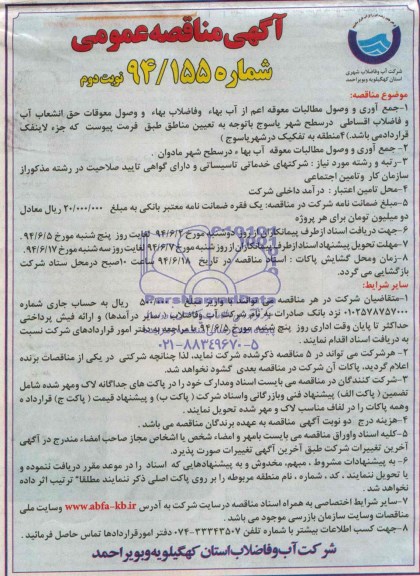 آگهی مناقصه عمومی
شماره ۹۴/۱۵۵ نوبت دوم
شرکت آب وفاضلاب شهری
استان کهگیلویه وبویراحمد
موضوع مناقصه:
۱-جمع آوری و وصول مطالبات معوقه اعم از آب بهاء وفاضلاب بهاء و وصول معوقات حق انشعاب آب
و فاضلاب اقساطی درسطح شهر یاسوج باتوجه به تعیین مناطق طبق فرمت پیوست که جزء لاینفک
قراردادمی باشد.(۴منطقه به تفکیک درشهریاسوج)
۲-جمع آوری و وصول مطالبات معوقه آب بهاء درسطح شهر مادوان.
۳-رتبه و رشته مورد نیاز : شرکتهای خدماتی تاسیساتی و دارای گواهی تایید صلاحیت در رشته مذکوراز
سازمان کار وتامین اجتماعی
۴-محل تامین اعتبار : درآمد داخلی شرکت
۵-مبلغ ضمانت نامه شرکت در مناقصه: یک فقره ضمانت نامه معتبر بانکی به مبلغ ۲۰/۰۰۰/۰۰۰ ریال معادل
دو میلیون تومان برای هر پروژه
۶-جهت دریافت اسناد ازطرف پیمانکاران ازروز دوشنبه مورخ ۹۴/۶/۲ لغایت روز پنج شنبه مورخ ۹۴/۶/۵.
۷-مهلت تحویل پیشنهاد اسناد ازطرف پیمانکاران از روز شنبه مورخ ۹۴/۶/۷ لغایت روز سه شنبه مورخ ۹۴/۶/۱۷
۸-زمان ومحل گشایش پاکات : اسناد مناقصه در تاریخ ۹۴/۶/۱۸ ساعت ۱۰صبح درمحل ستاد شرکت
بازگشایی می گردد.
سایر شرایط:
۱-متقاضیان شرکت در هر مناقصه می توانند با واریز مبلغ ۵۰۰/۰۰۰ ریال به حساب جاری شماره
۰۱۰۲۵۷۸۷۵۷۰۰۰ نزد بانک صادرات به نام شرکت آب وفاضلاب (سایر درآمدها) و ارائه فیش پرداختی
حداکثر تا پایان وقت اداری روز پنج شنبه مورخ ۹۴/۶/۵ با مراجعه به دفتر امور قراردادهای شرکت نسبت
به دریافت اسناد اقدام نمایند.
۲- هرشرکت می تواند در ۵ مناقصه ذکرشده شرکت نماید، لذا چنانچه شرکتی در یکی از مناقصات برنده
اعلام گردید، پاکات آن شرکت در مناقصه بعدی گشود نخواهد شد.
۳-شرکت کنندگان در مناقصه می بایست اسناد ومدارک خود را در پاکت های جداگانه لاک ومهر شده شامل
تضمین ( پاکت الف) پیشنهاد فنی وبازرگانی واسناد شرکت ( پاکت ب) و پیشنهاد قیمت ( پاکت ج) قرارداده و
همه پاکات را در لفاف مناسب لاک و مهر شده تحویل نمایند.
۴-هزینه درج دو نوبت آگهی مناقصه به عهده برندگان مناقصه می باشد.
۵-کلیه اسناد واوراق مناقصه می بایست بامهر و امضاء شخص یا اشخاص مجاز صاحب امضاء مندرج در آگهی
آخرین تغییرات شرکت طبق آخرین آگهی تغییرات صورت پذیرد.
۶-به پیشنهادات مشروط ، مبهم، مخدوش و به پیشنهادهایی که اسناد را در موعد مقرر دریافت ننموده و
یا تحویل ننمایند ، کد ، شماره ، نام منطقه مربوطه را بر روی پاکت اصلی ذکر ننمایند مطلقا" ترتیب اثر داده
نخواهد شد.
۷-سایر شرایط اختصاصی به همراه اسناد مناقصه درسایت شرکت به آدرس www.abfa-kb.ir وسایت ملی
مناقصات وسایت سازمان بازرسی موجود می باشد.
۸-جهت کسب اطلاعات بیشتر با شماره تلفن ۳۳۳۴۳۵۰۷-۰۷۴ دفتر امورقراردادها تماس حاصل فرمائید.
شرکت آب وفاضلاب استان کهگیلویه وبویر احمد
۰۲۱-۸۸۳۴۹۶۷۰-۵